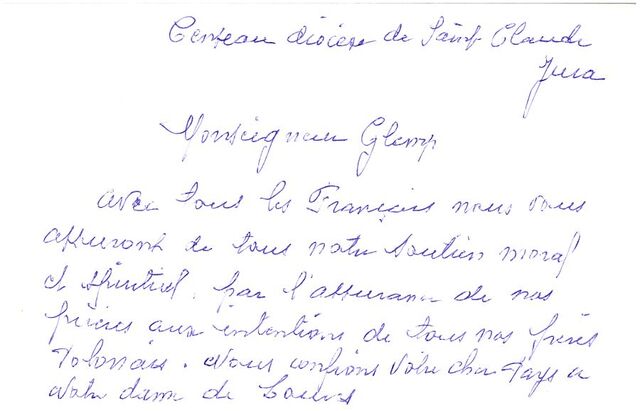 Censeau diocèse de Saint Claude
Jura
Monseigneur Glemp
avec tous les Français nous vous
assurons de tous notre soutien moral
et spirituel, par l'assurance de nos
prières aux intentions de tous nos frères
Polonais. Nous confions Votre cher Pays a
Notre dame de Lourdes